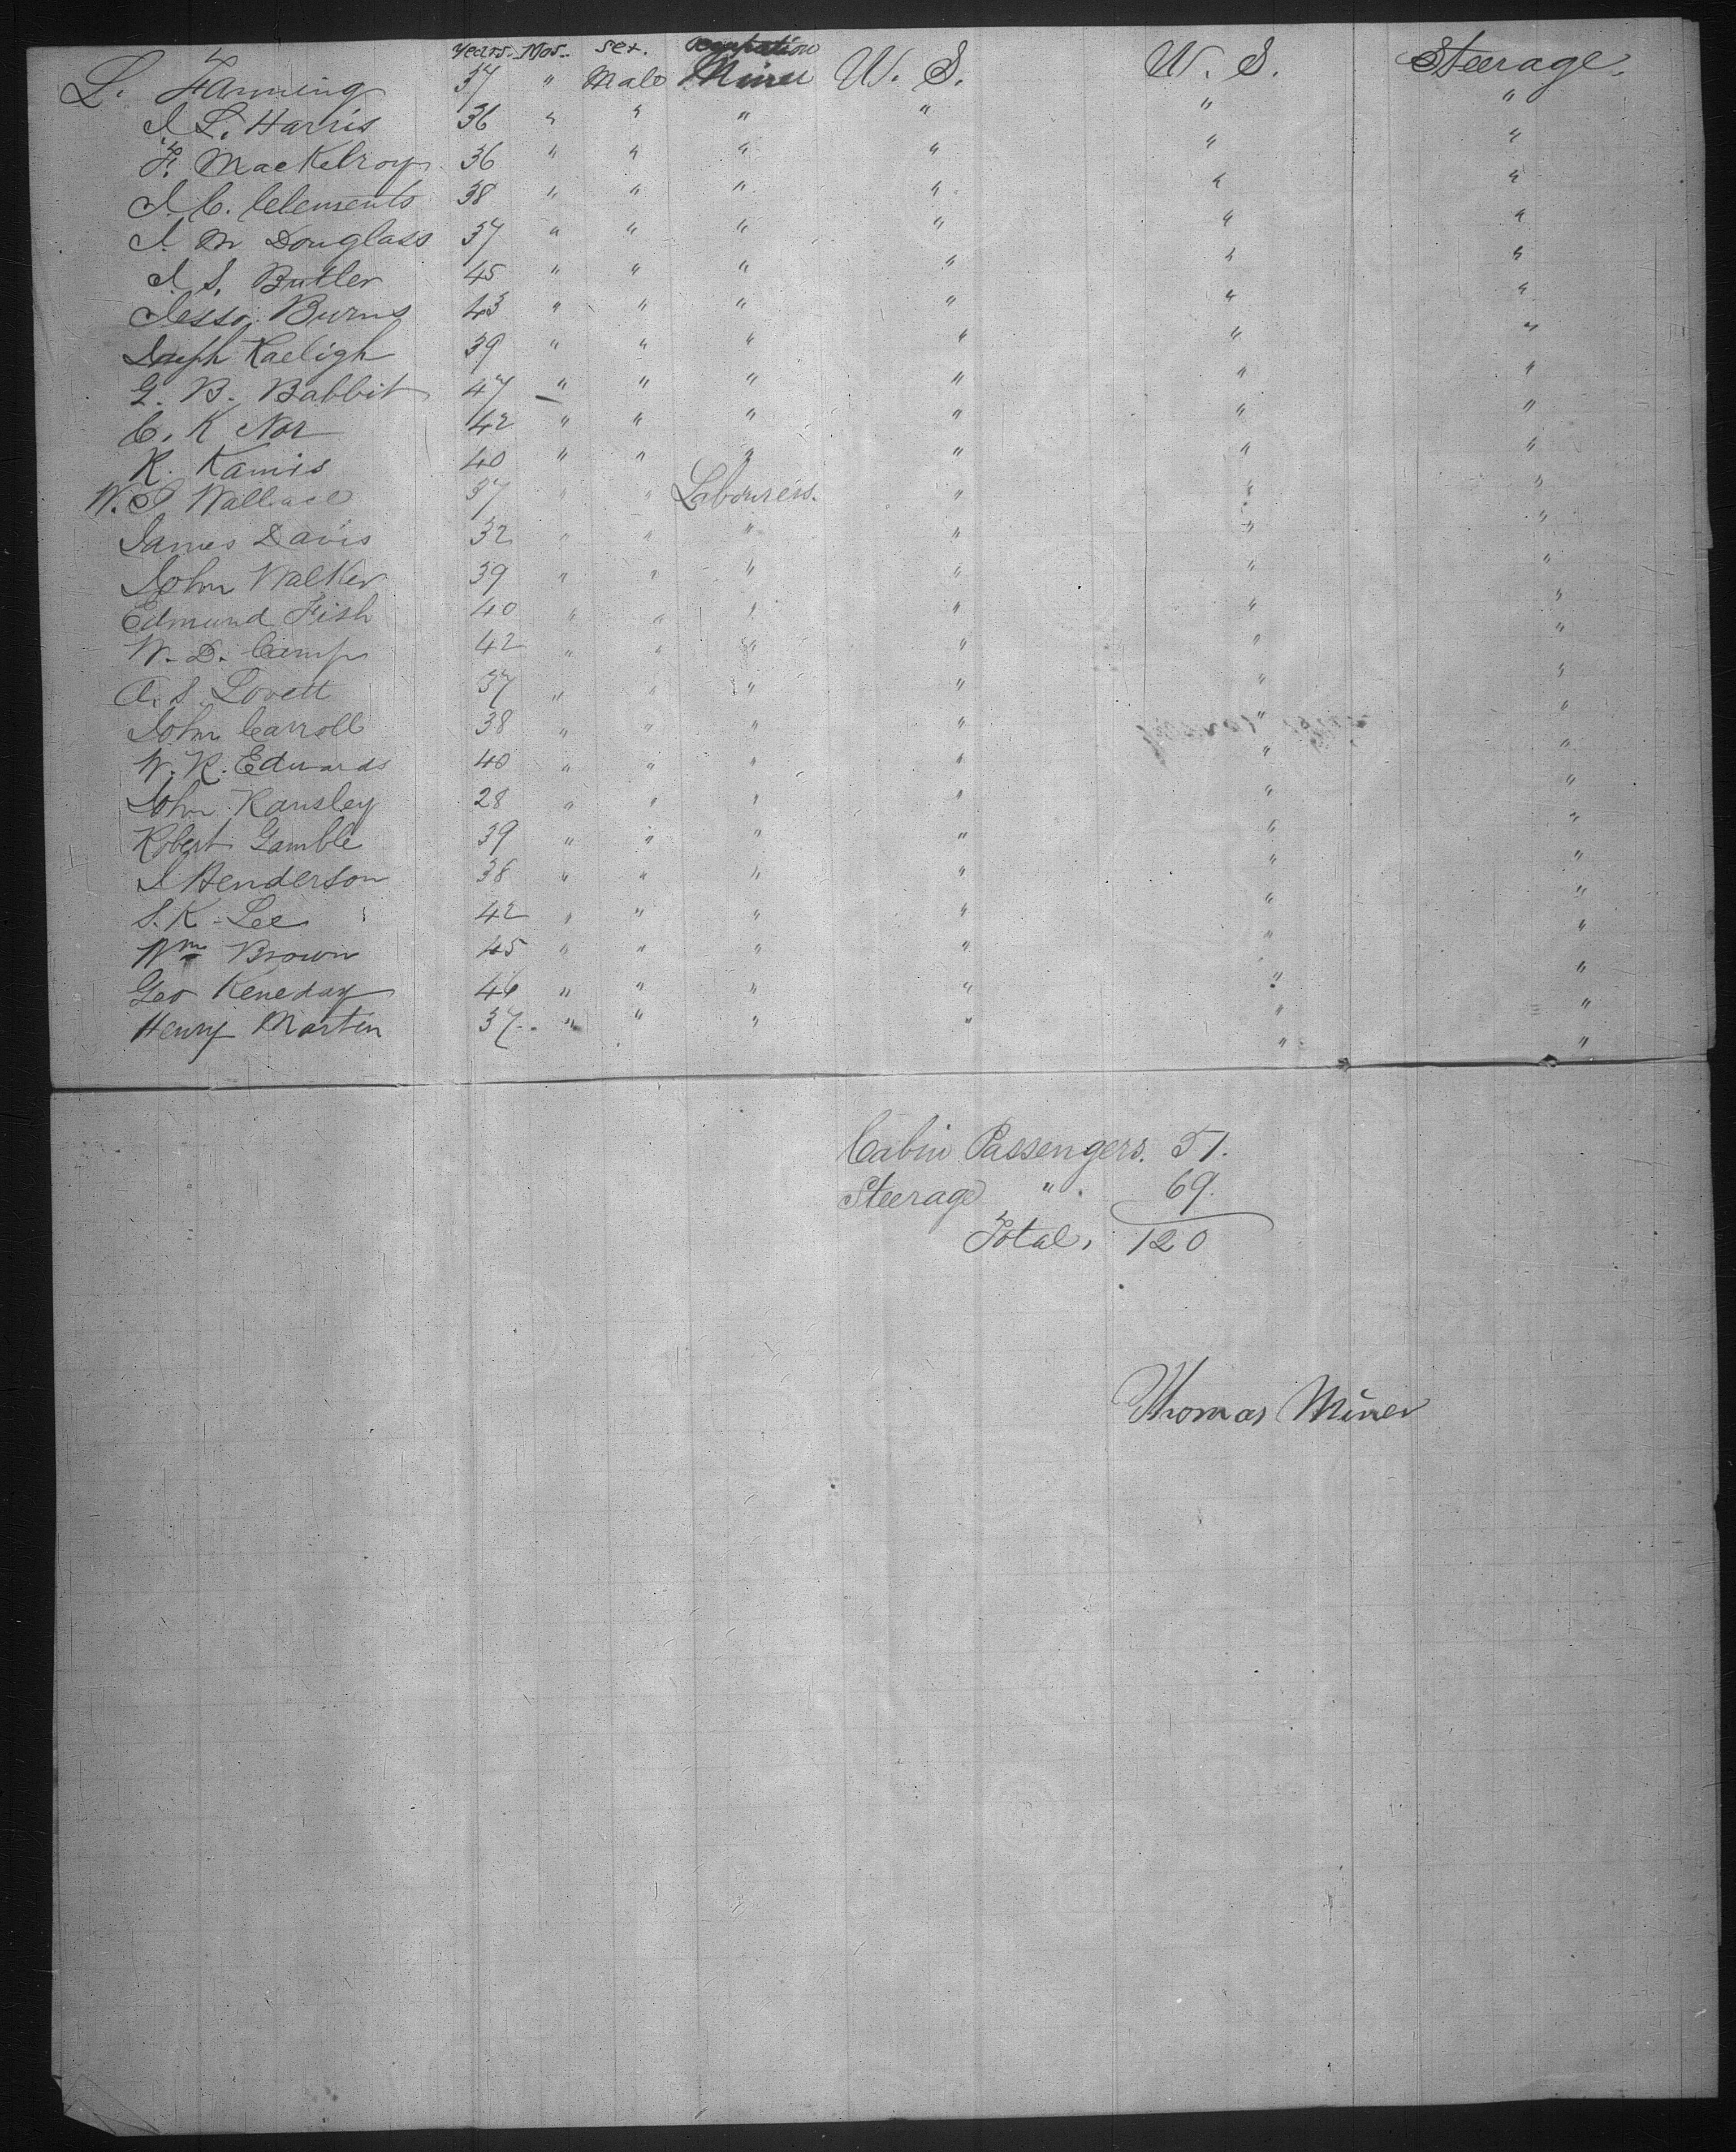 Years. Mos. Sex. Occupation
L. Fanning 37 " Male Miner U. S. U. S. Steerage.
J. L. Harris 36 " " " " " "
F. MacKelroy 36 " " " " " "
J. C. Clements 38 " " " " " "
J. M Douglass 37 " " " " " "
J. S. Butler 45 " " " " " "
Jesse Burns 43 " " " " " "
Joseph Raeligh 39 " " " " " "
G. B. Babbit 47 " " " " " "
C. K Nor 42 " " " " " "
R. Kamis 40 " " " " " "
W. J. Wallace 37 " " Labourers. " " "
James Davis 32 " " " " " "
John Walker 39 " " " " " "
Edmund Fish 40 " " " " " "
W. D. Camp 42 " " " " " "
A. S. Lovett 37 " " " " " "
John Carroll 38 " " " " " "
W. R. Edwards 40 " " " " " "
John Ransley 28 " " " " " "
Robert Gamble 39 " " " " " "
J Henderson 38 " " " " " "
S. K. Lee 42 " " " " " "
Wm Brown 45 " " " " " "
Geo Keneday 46 " " " " " "
Henry Martin 37 " " " " " "
Cabin Passengers. 51.
Steerage " . 69.
Total, 120
Thomas Miner